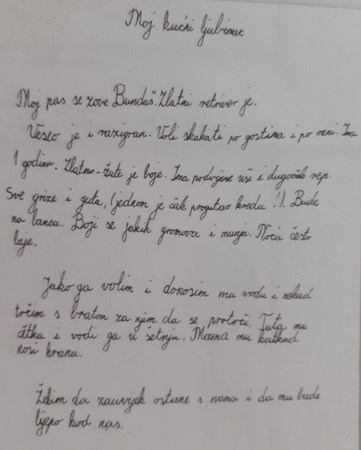 Moj kućni ljubimac
Moj pas se zove Bundaš. Zlatni retriver je.
Veseo je i razigran. Voli skakati po gostima i po meni. Ima
1 godinu. Zlatno-žute je boje. Ima podvijene uši i dugačak rep.
Sve grize i guta, (jednom je čak progutao kredu!). Bude
na lancu. Boji se jakih gromova i munja. Noću često
laje.
Jako ga volim i donosim mu vodu i nekad
trčim s bratom za njim da se protrči. Tata mu
četka i vodi ga u šetnju. Mama mu katkad
nosi hranu.
Želim da zauvijek ostane s nama i da mu bude
lijepo kod nas.